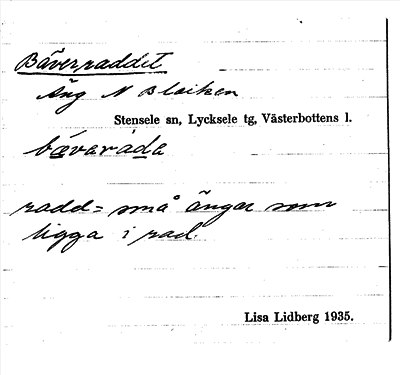 Bäverraddet
Äng N Blaiken
Stensele sn, Lycksele tg, Västerbottens l.
bævaráda
radd = små ängar som
ligga i rad.
Lisa Lidberg 1935.